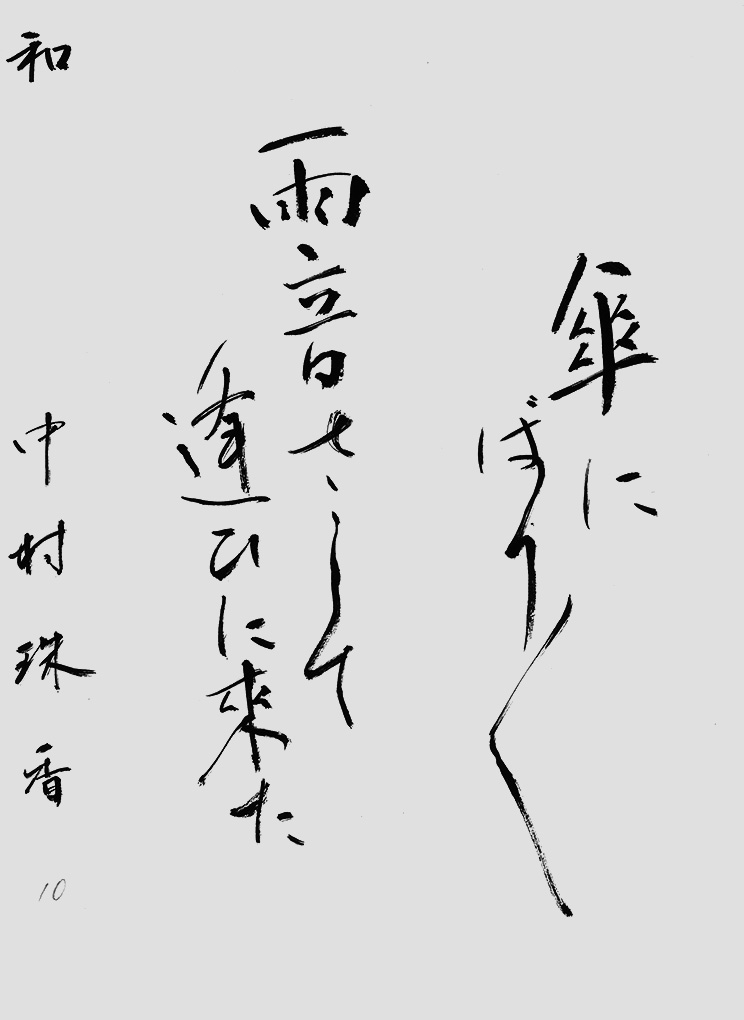 傘に
ばり〱
雨音さして
逢ひに來た
和 中村珠香
10